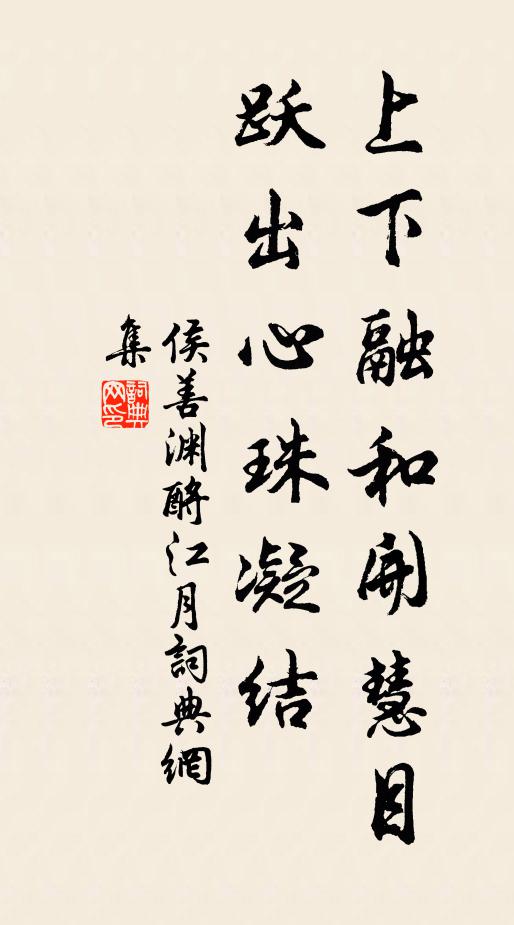 上下融和开慧目
跃出心珠凝结
侯善渊酹江月词典網
集
詞典
网印